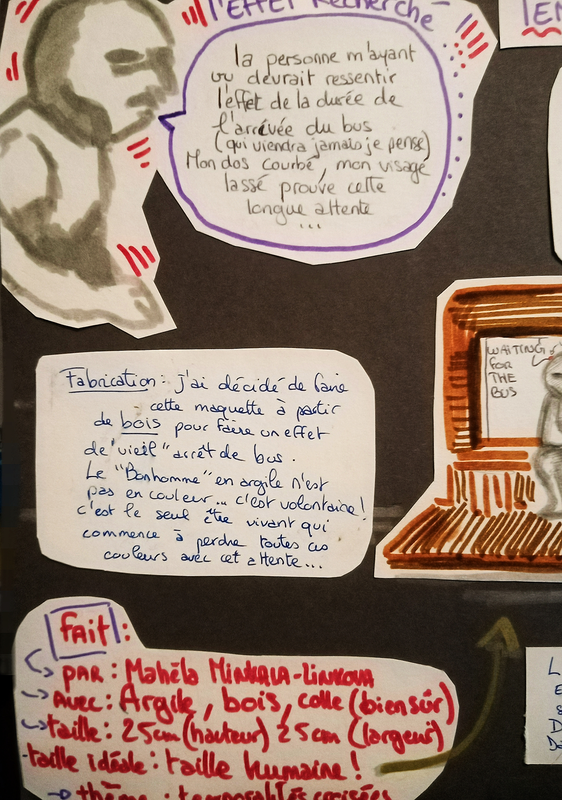 l'EFFET Recherché
la personne m'ayant
vu devrait ressentir
l'effet de la durée de
l'arrivée du bus
(qui viendra jamais je pense)
Mon dos courbé, mon visage
lassé prouve cette
longue attente
...
WAITING
FOR
THE
BUS
Fabrication : j'ai décidé de faire
cette maquette à partir
de bois pour faire un effet
de "vieil" arrêt de bus.
Le "Bonhomme" en argile n'est
pas en couleur... c'est volontaire!
c'est le seul être vivant qui
commence à perdre toutes ces
couleurs avec cet attente...
fait :
PAR : Mahéla MINKALA-LINKOVA
AVEC : Argile, bois, colle (biensûr)
taille : 25cm (hauteur) 25cm (largeur)
-taille idéale : taille humaine !
thème : temporalités croisées